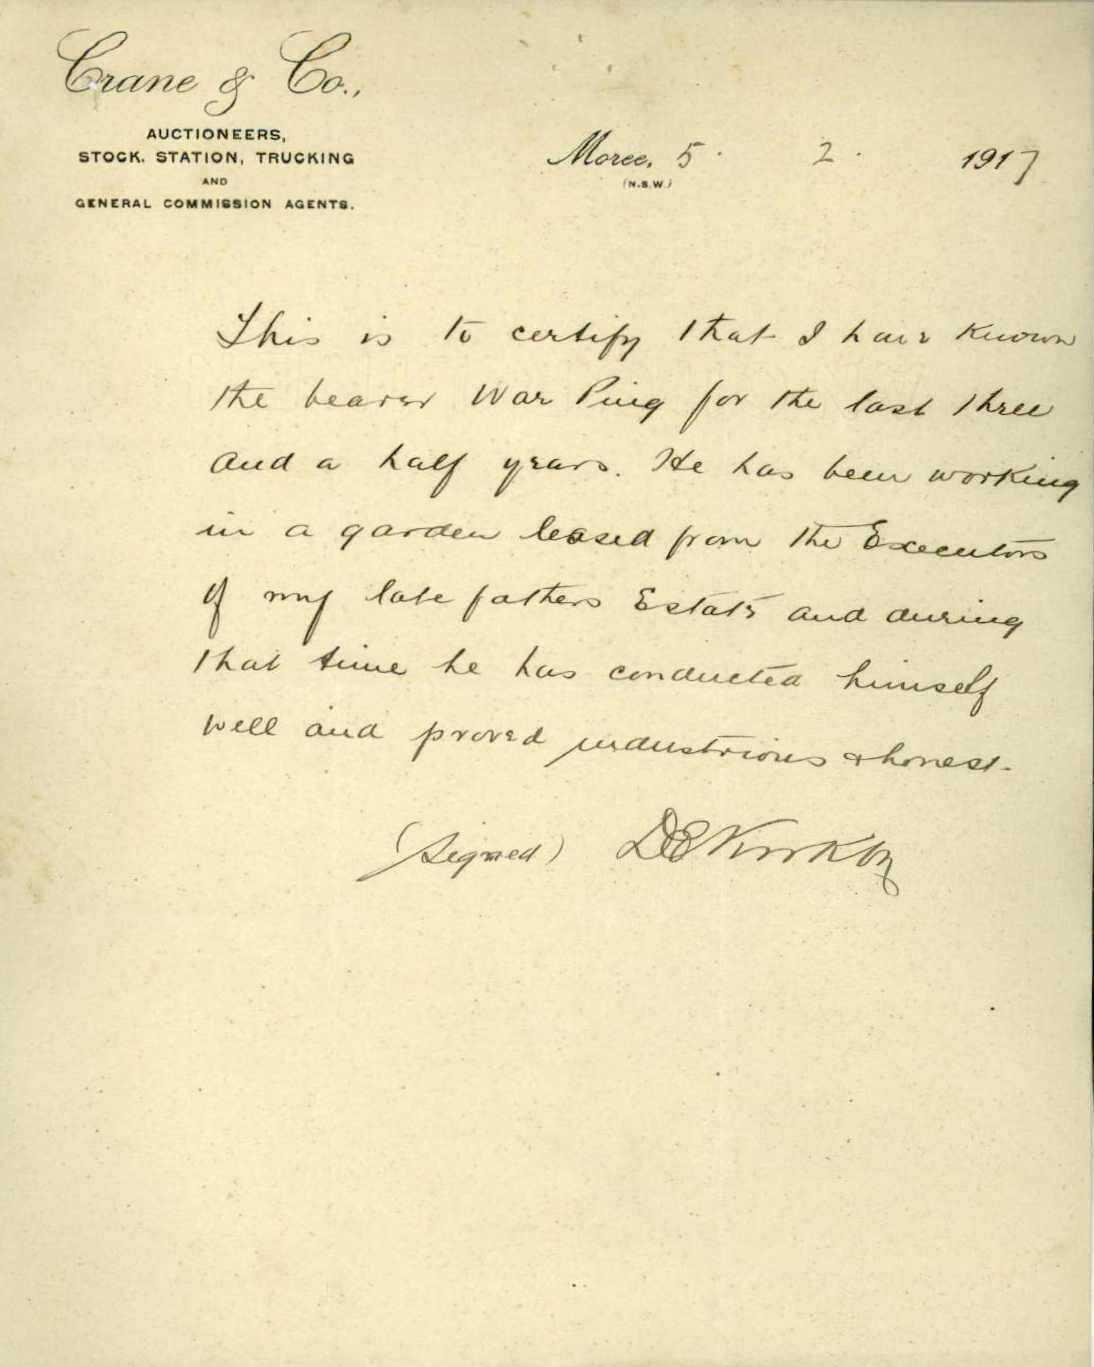 Crane & Co.,
AUCTIONEERS,
STOCK. STATION, TRUCKING
AND
GENERAL COMMISSION AGENTS.
Moree, 5. 2. 1917
(N.S.W.)
This is to certify that I have known
the bearer War Ping for the last three
and a half years. He has been working
in a garden leased from the Executors
of my late fathers Estate and during
that time he has conducted himself
well and proved industrious & honest.
(Signed) D E Kirkby